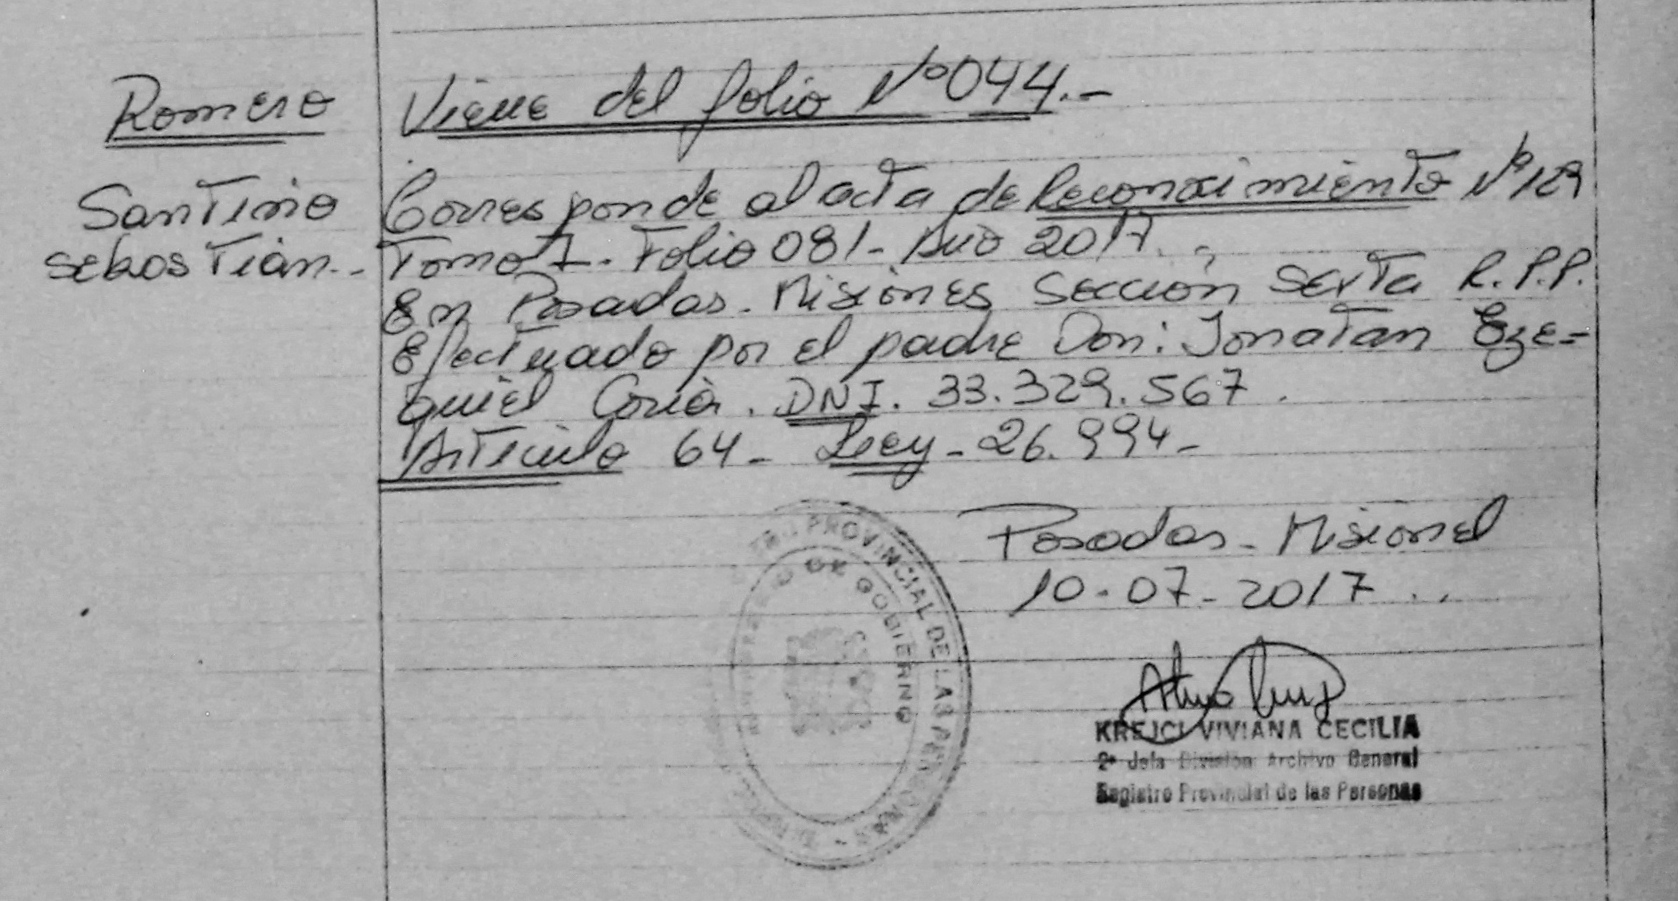 Romero
Santino
Sebastian.-
Viene del folio N°044.-
Corresponde al acta de Reconocimiento N°129
Tomo I. Folio 081- Año 2017.
En Posadas. Misiones Sección Sexta R.P.P.
Efectuado por el padre Don: Jonatan Eze=
quiel Coria. DNI. 33.329.567.
Artículo 64- Ley-26.994-
Posadas- Misiones
10-07-2017
PROVINCIAL DE LAS PERSONAS
DE GOBIERNO
KREJCI VIVIANA CECILIA
2° Jefa División Archivo General
Registro Provincial de las Personas